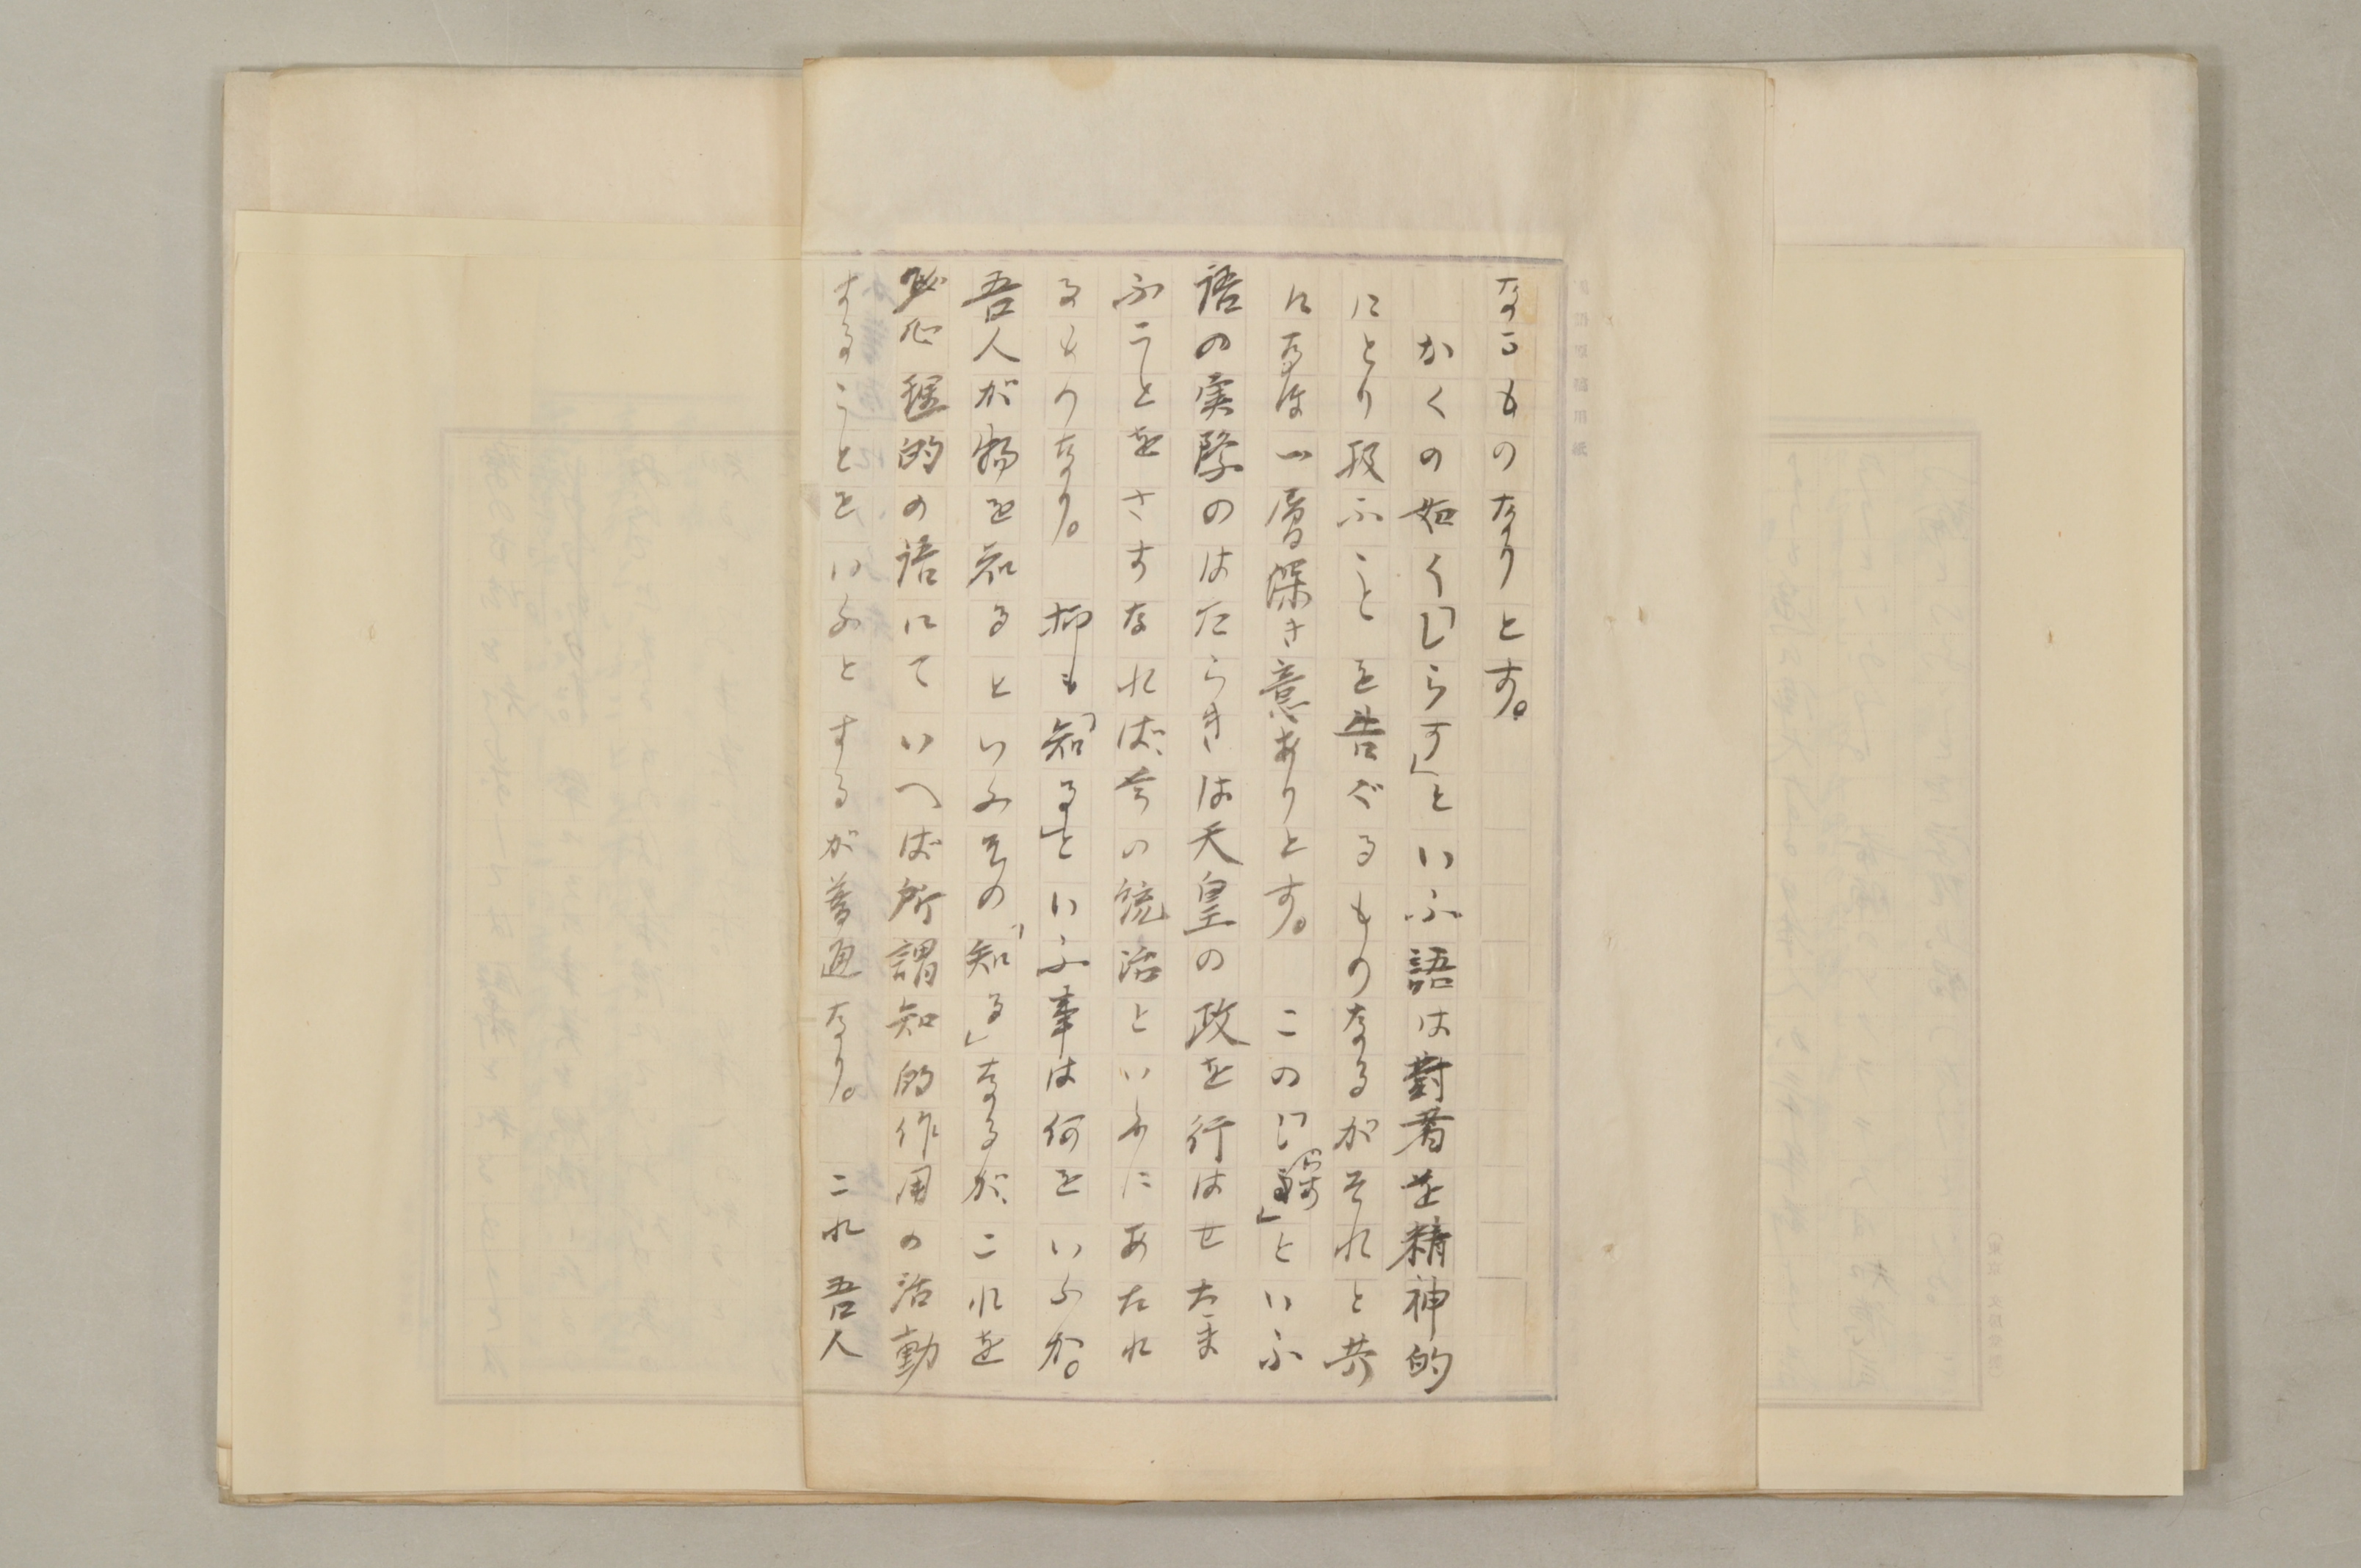 なるものなりとす。
かくの如く「しらす」といふ語は對者を精神的
にとり扱ふことを告ぐるものなるがそれと共
になほ一層深き意ありとす。 このといふ
語の実際のはたらきは天皇の政を行はせたま
ふことをさすなれば、若い統治といふにあたれ
るものなり。 抑も「知る」といふ事は何をいふか。
吾人が物を知るといふその「知る」なるが、これを
心理的の語にていへば所謂知的作用の活動
することをいふとするが普通なり。 これ吾人